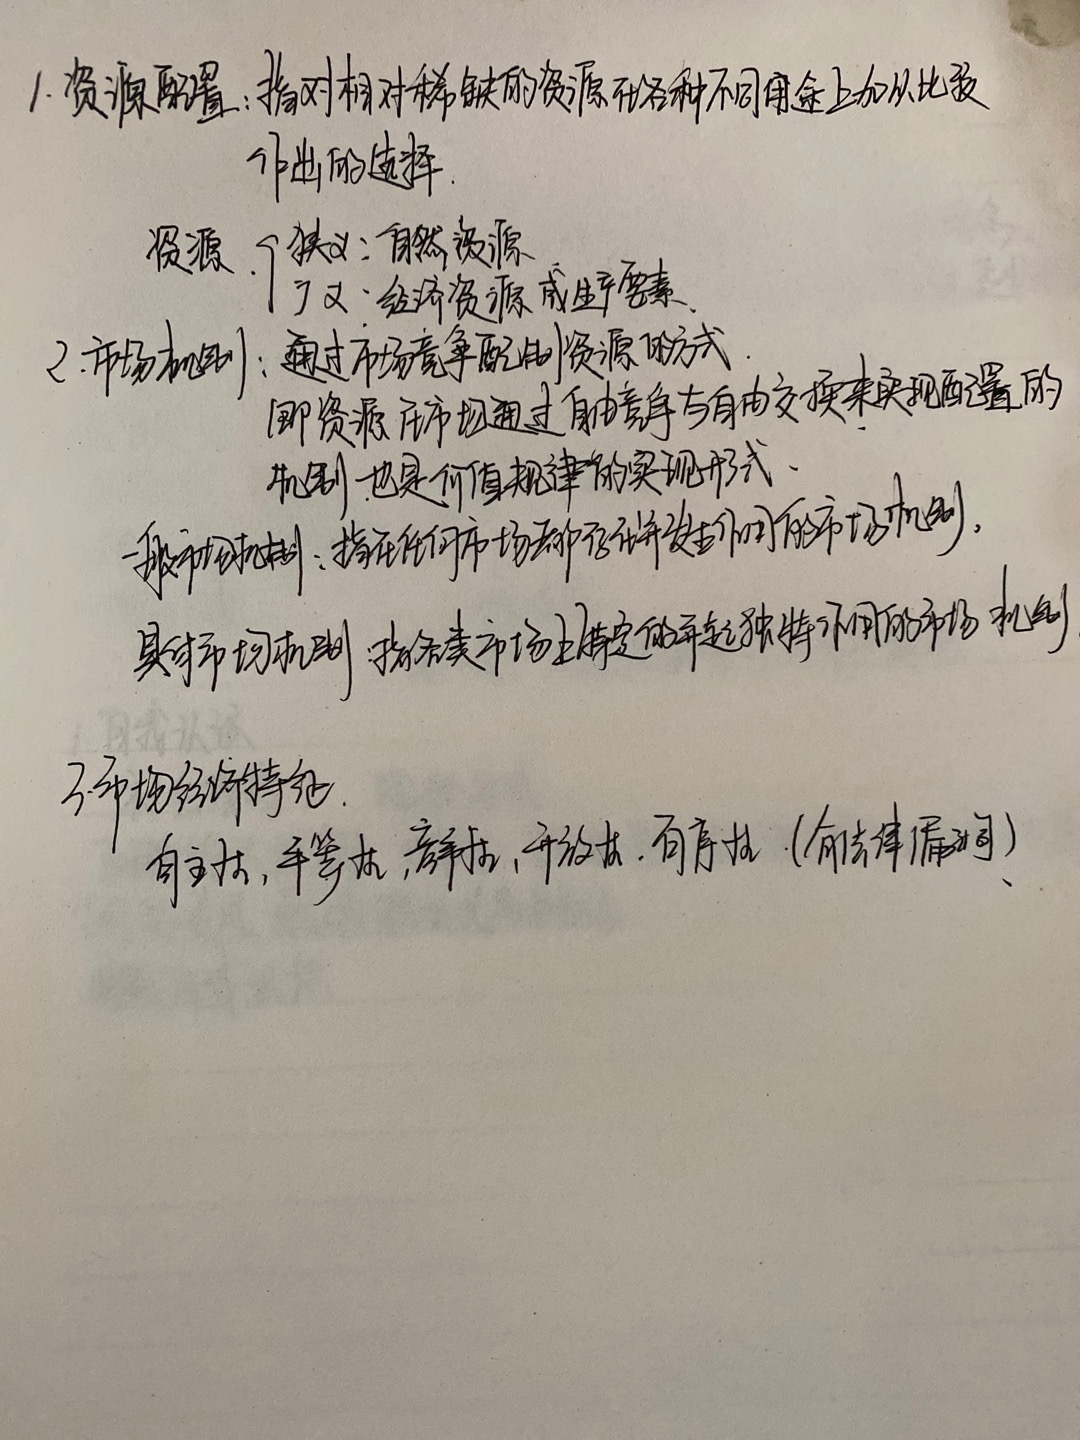 1.资源配置:指对相对稀缺的资源在各种不同用途上加以比较
作出的选择.
资源.{狭义:自然资源
广义:经济资源或生产要素.
2.市场机制:通过市场竞争配制资源的方式.
即资源在市场通过自由竞争与自由交换来实现配置的
机制 也是价值规律的实现形式、
一般市场机制:指在任何市场都存在并发生作用的市场机制.
具体市场机制 指各类市场上特定的并起独特作用的市场机制.
3.市场经济特征.
自主性,平等性,竞争性,开放性.有序性.(有法律漏洞)、